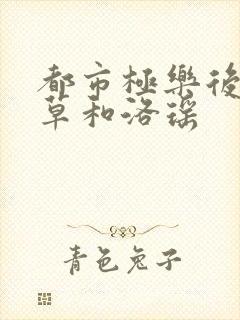 都市極樂後
草和洛瑤
青色兔子